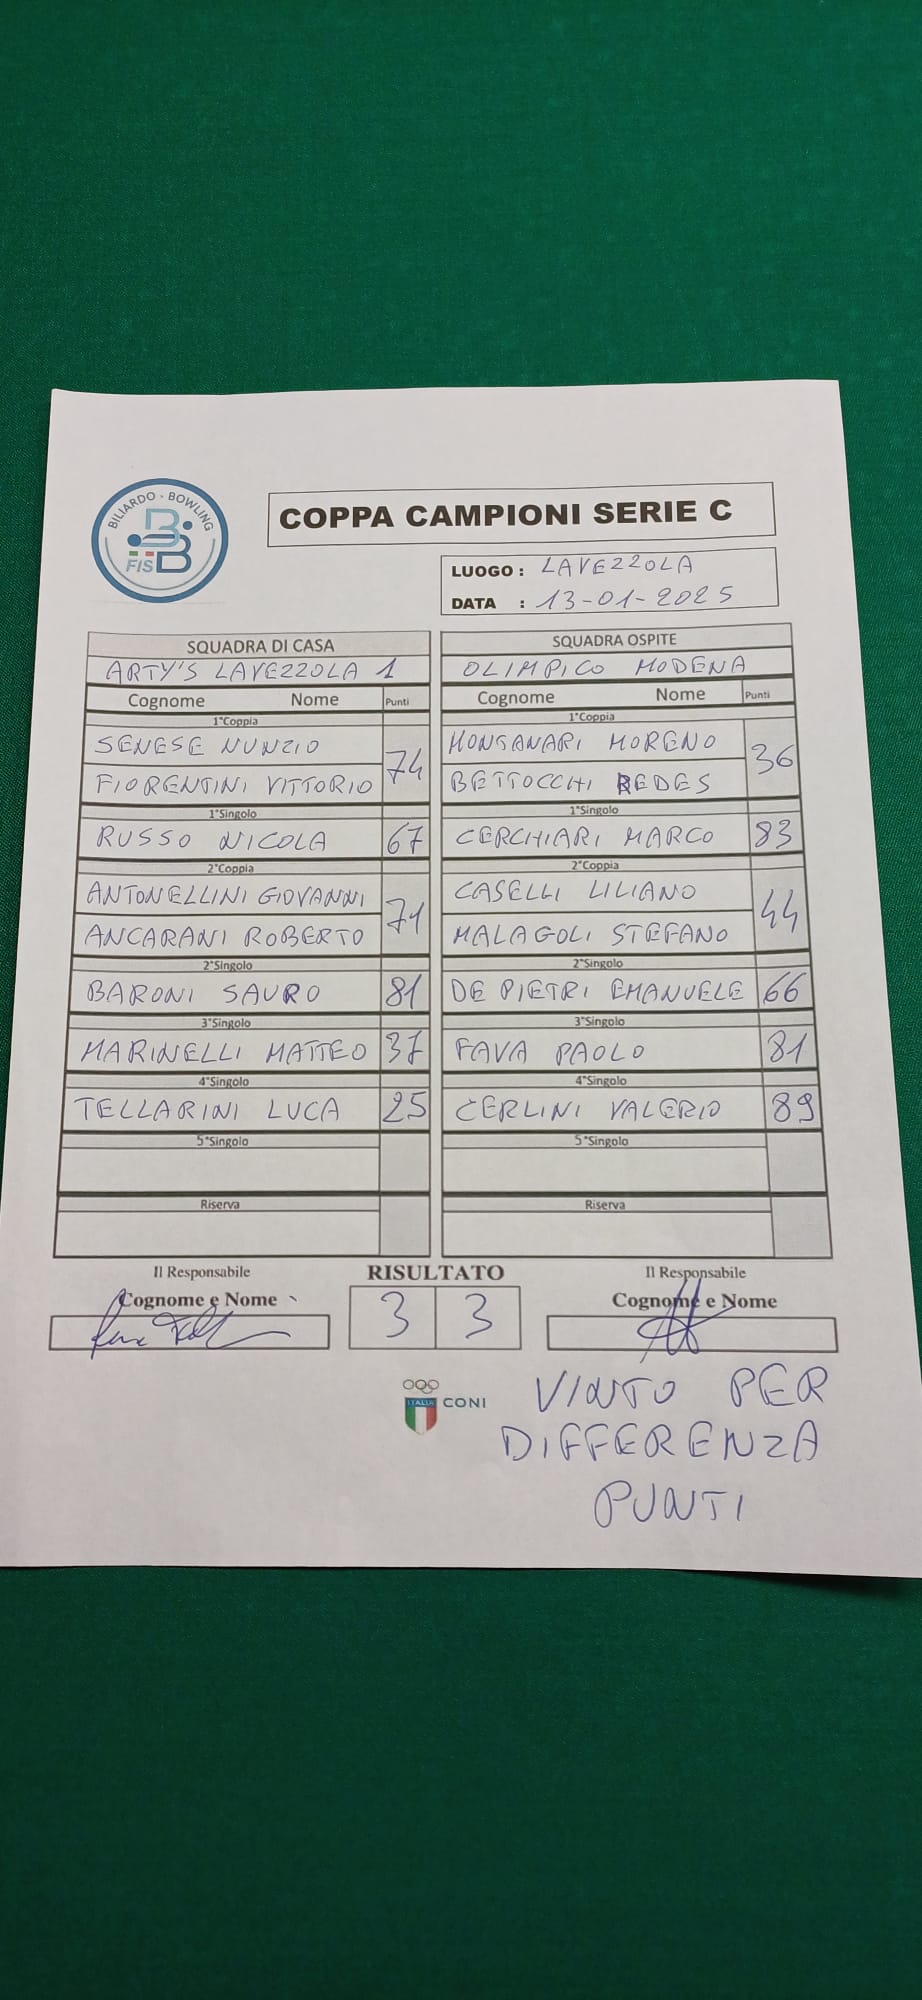 BILIARDO - BOWLING
FISBB
COPPA CAMPIONI SERIE C
LUOGO : LAVEZZOLA
DATA : 13-01-2025
SQUADRA DI CASA SQUADRA OSPITE
ARTY'S LAVEZZOLA 1 OLIMPICO MODENA
Cognome Nome Punti Cognome Nome Punti
1°Coppia 1°Coppia
SENESE NUNZIO 74 MONTANARI MORENO 36
FIORENTINI VITTORIO BETTOCCHI REDES
1°Singolo 1°Singolo
RUSSO NICOLA 67 CERCHIARI MARCO 83
2°Coppia 2°Coppia
ANTONELLINI GIOVANNI 71 CASELLI LILIANO 44
ANCARANI ROBERTO MALAGOLI STEFANO
2°Singolo 2°Singolo
BARONI SAURO 81 DE PIETRI EMANUELE 66
3°Singolo 3°Singolo
MARINELLI MATTEO 37 FAVA PAOLO 81
4°Singolo 4°Singolo
TELLARINI LUCA 25 CERLINI VALERIO 89
5°Singolo 5°Singolo
Riserva Riserva
Il Responsabile RISULTATO Il Responsabile
Cognome e Nome 3 3 Cognome e Nome
ITALIA CONI
VINTO PER
DIFFERENZA
PUNTI